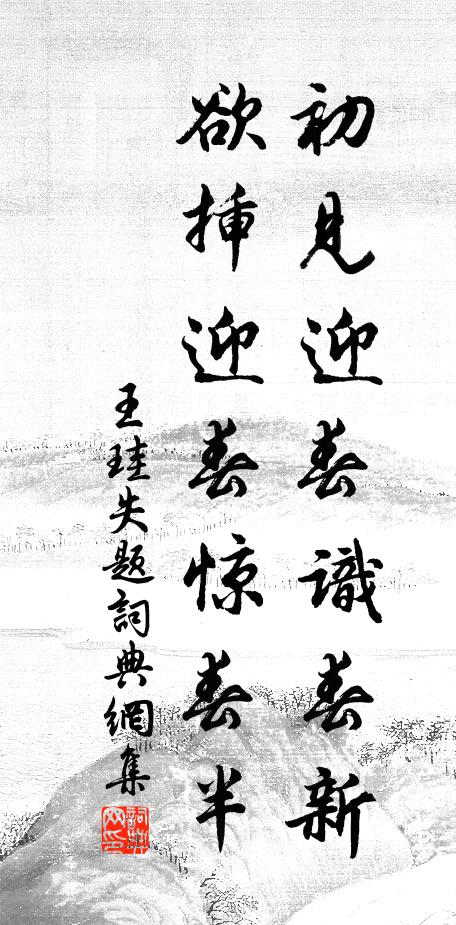 初見迎春識春新
欲挿迎春惊春半
王珪失題詞典網集